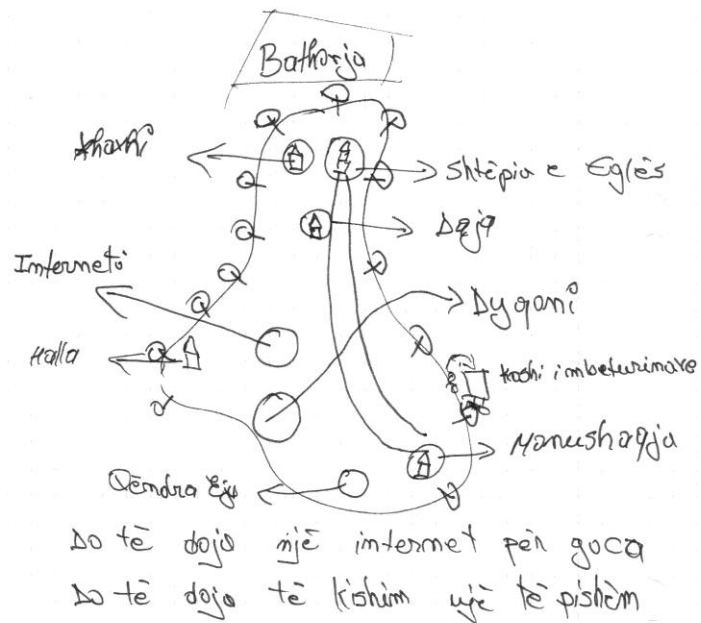 Bathorja
Shtëpia e Eglës
Daja
Interneti
Dyqani
Halla
Koshi i mbeturinave
Manushaqja
Qëndra Eju
Do të doja një internet për goca
Do të doja të kishim ujë të pishëm